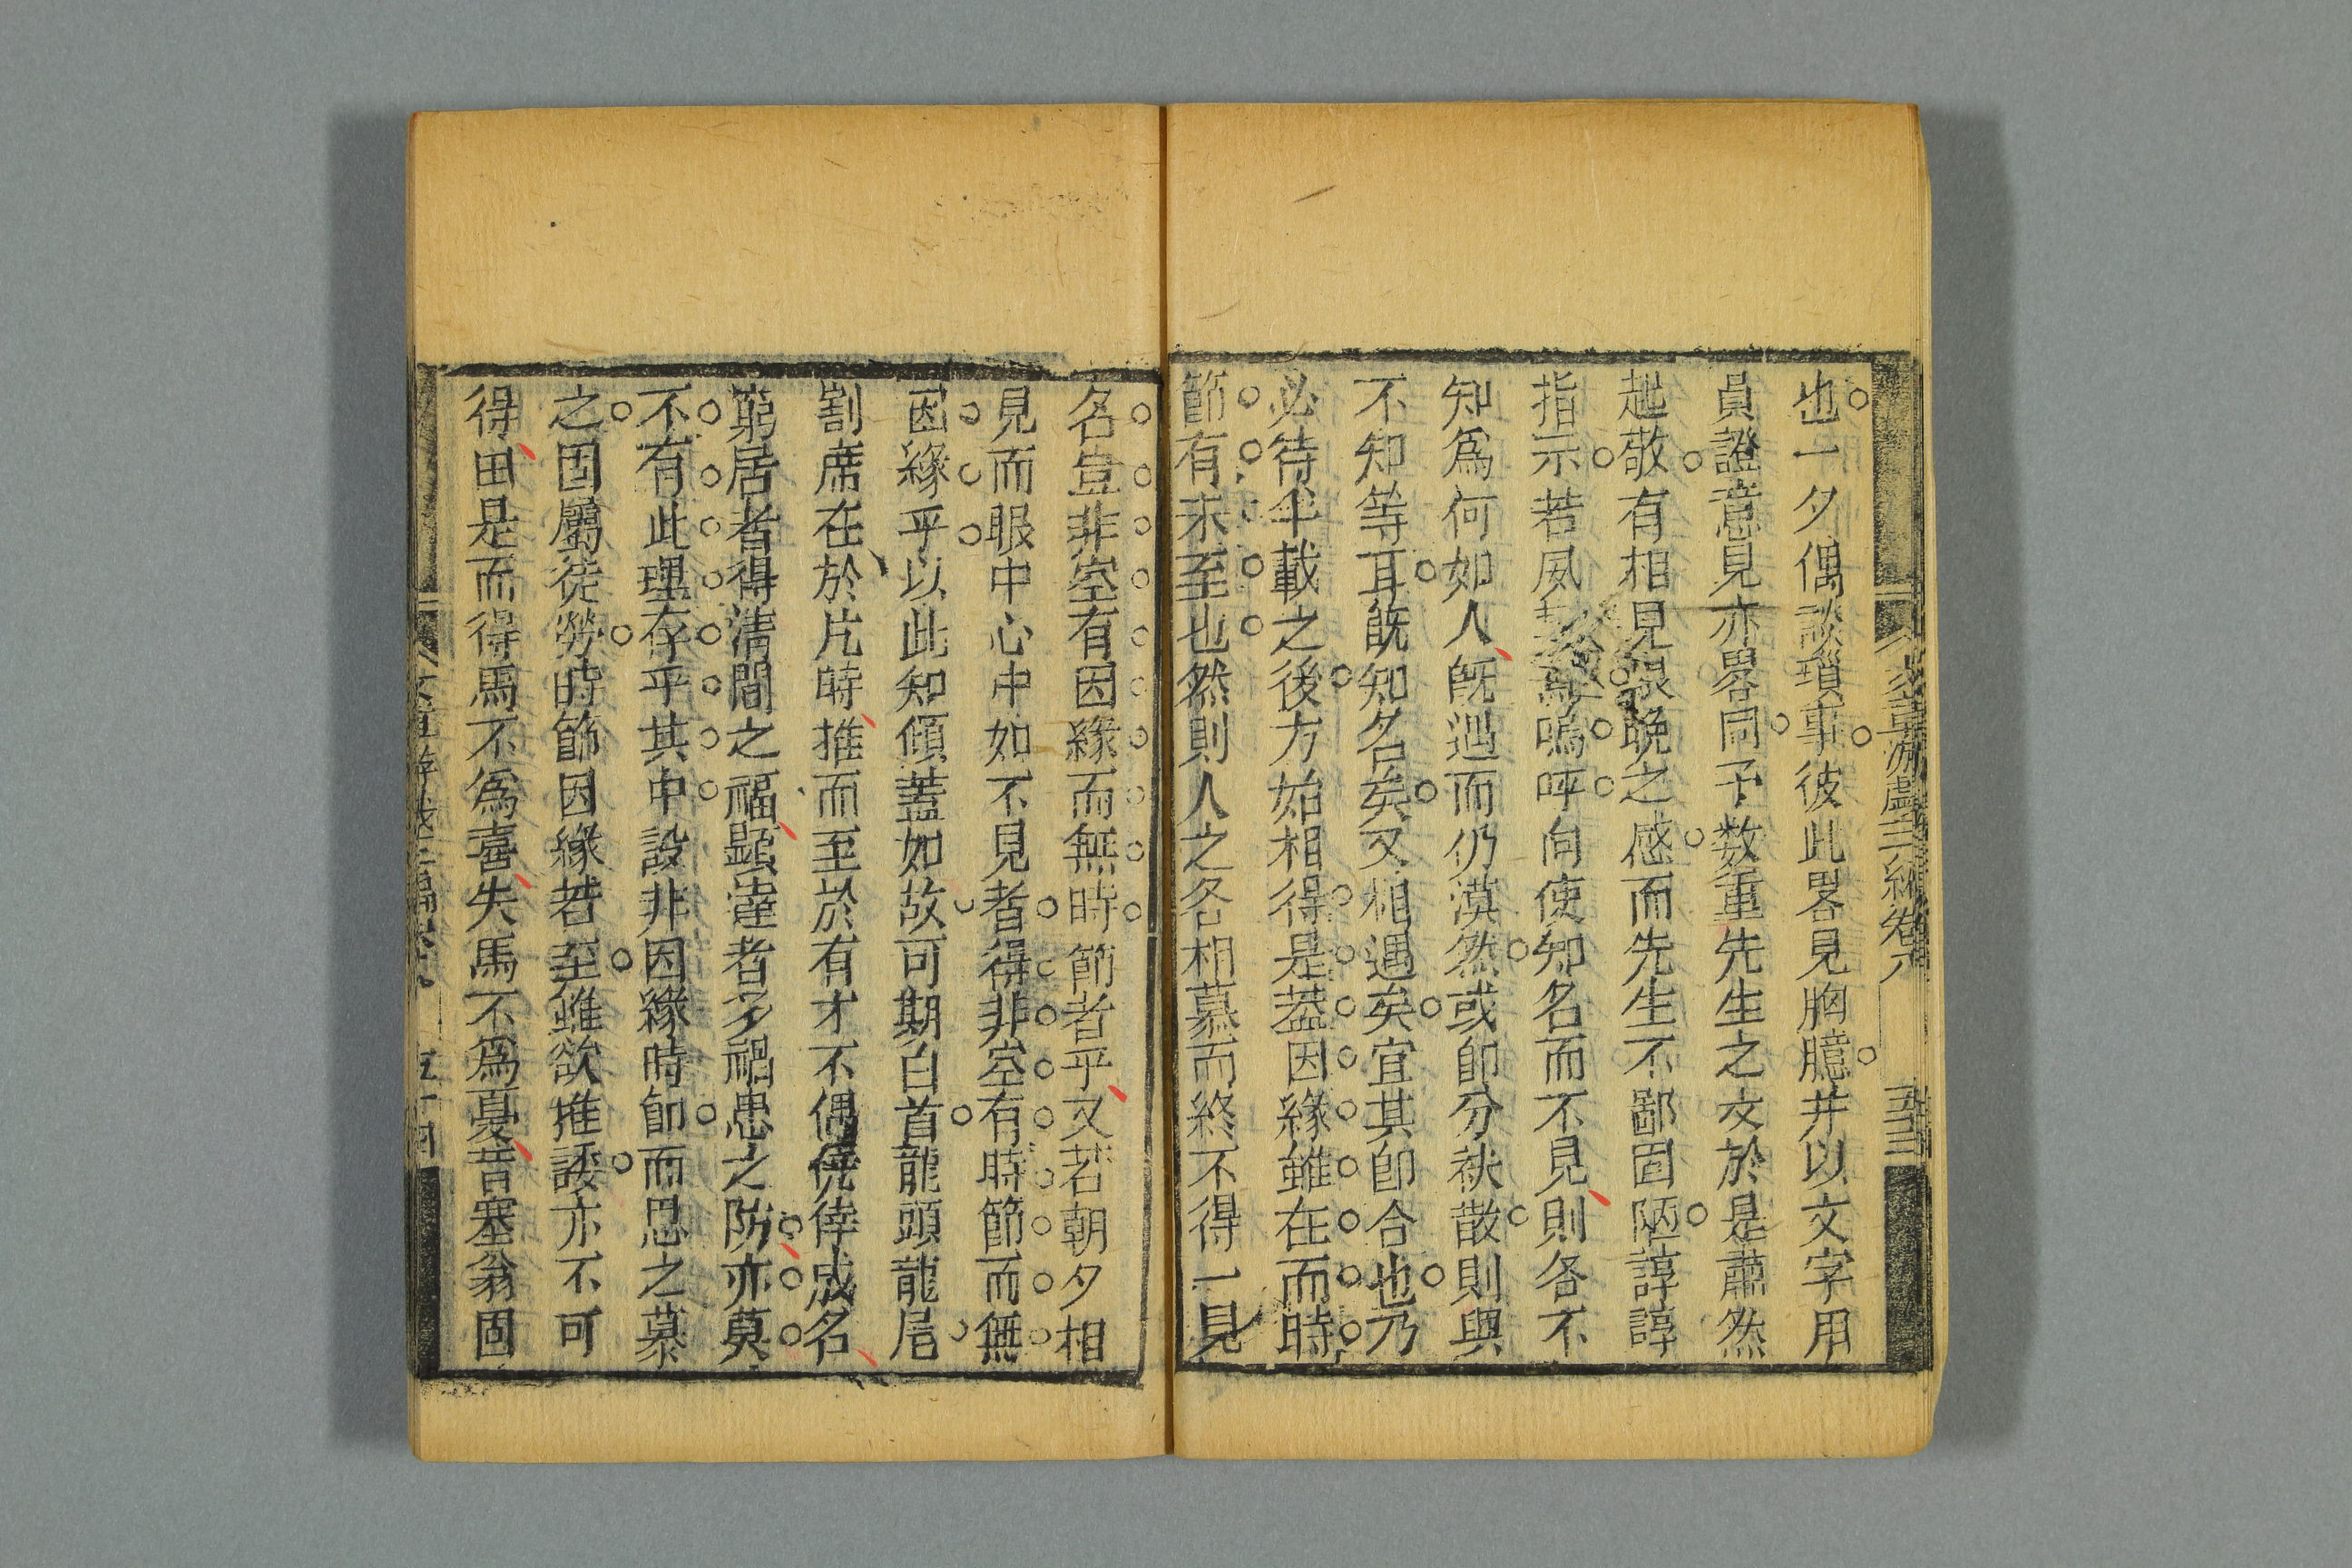 文章游戲三編卷八
五十三
也一夕偶談瑣事彼此畧見胸臆并以文字用
員證意見亦畧同予数重先生之文於是肅然
起敬有相見恨晚之感而先生不鄙固陋諄諄
指示若嗚呼向使知名而不見則各不
知爲何如人既遇而仍漠然或卽分袂散則與
不知等耳旣知名矣又相遇矣宜其卽合也乃
必待半載之後方始相得是葢因緣雖在而時
節有未至也然則人之各相慕而終不得一見
名豈非空有因緣而無時節者乎又若朝夕相
見而眼中心中如不見者得非空有時節而無
因緣乎以此知傾蓋如故可期白首龍頭龍尾
割席在於片時推而至於有才不偶僥倖成名
窮居者得清閒之福顯達者多禍患之防亦莫
不有此理存乎其中設非因緣時節而思之慕
之固屬徒勞時節因緣若至雖欲推諉亦不可
得田是而得馬不爲喜失馬不爲憂昔塞翁固
文章游戲三編卷八
五十四